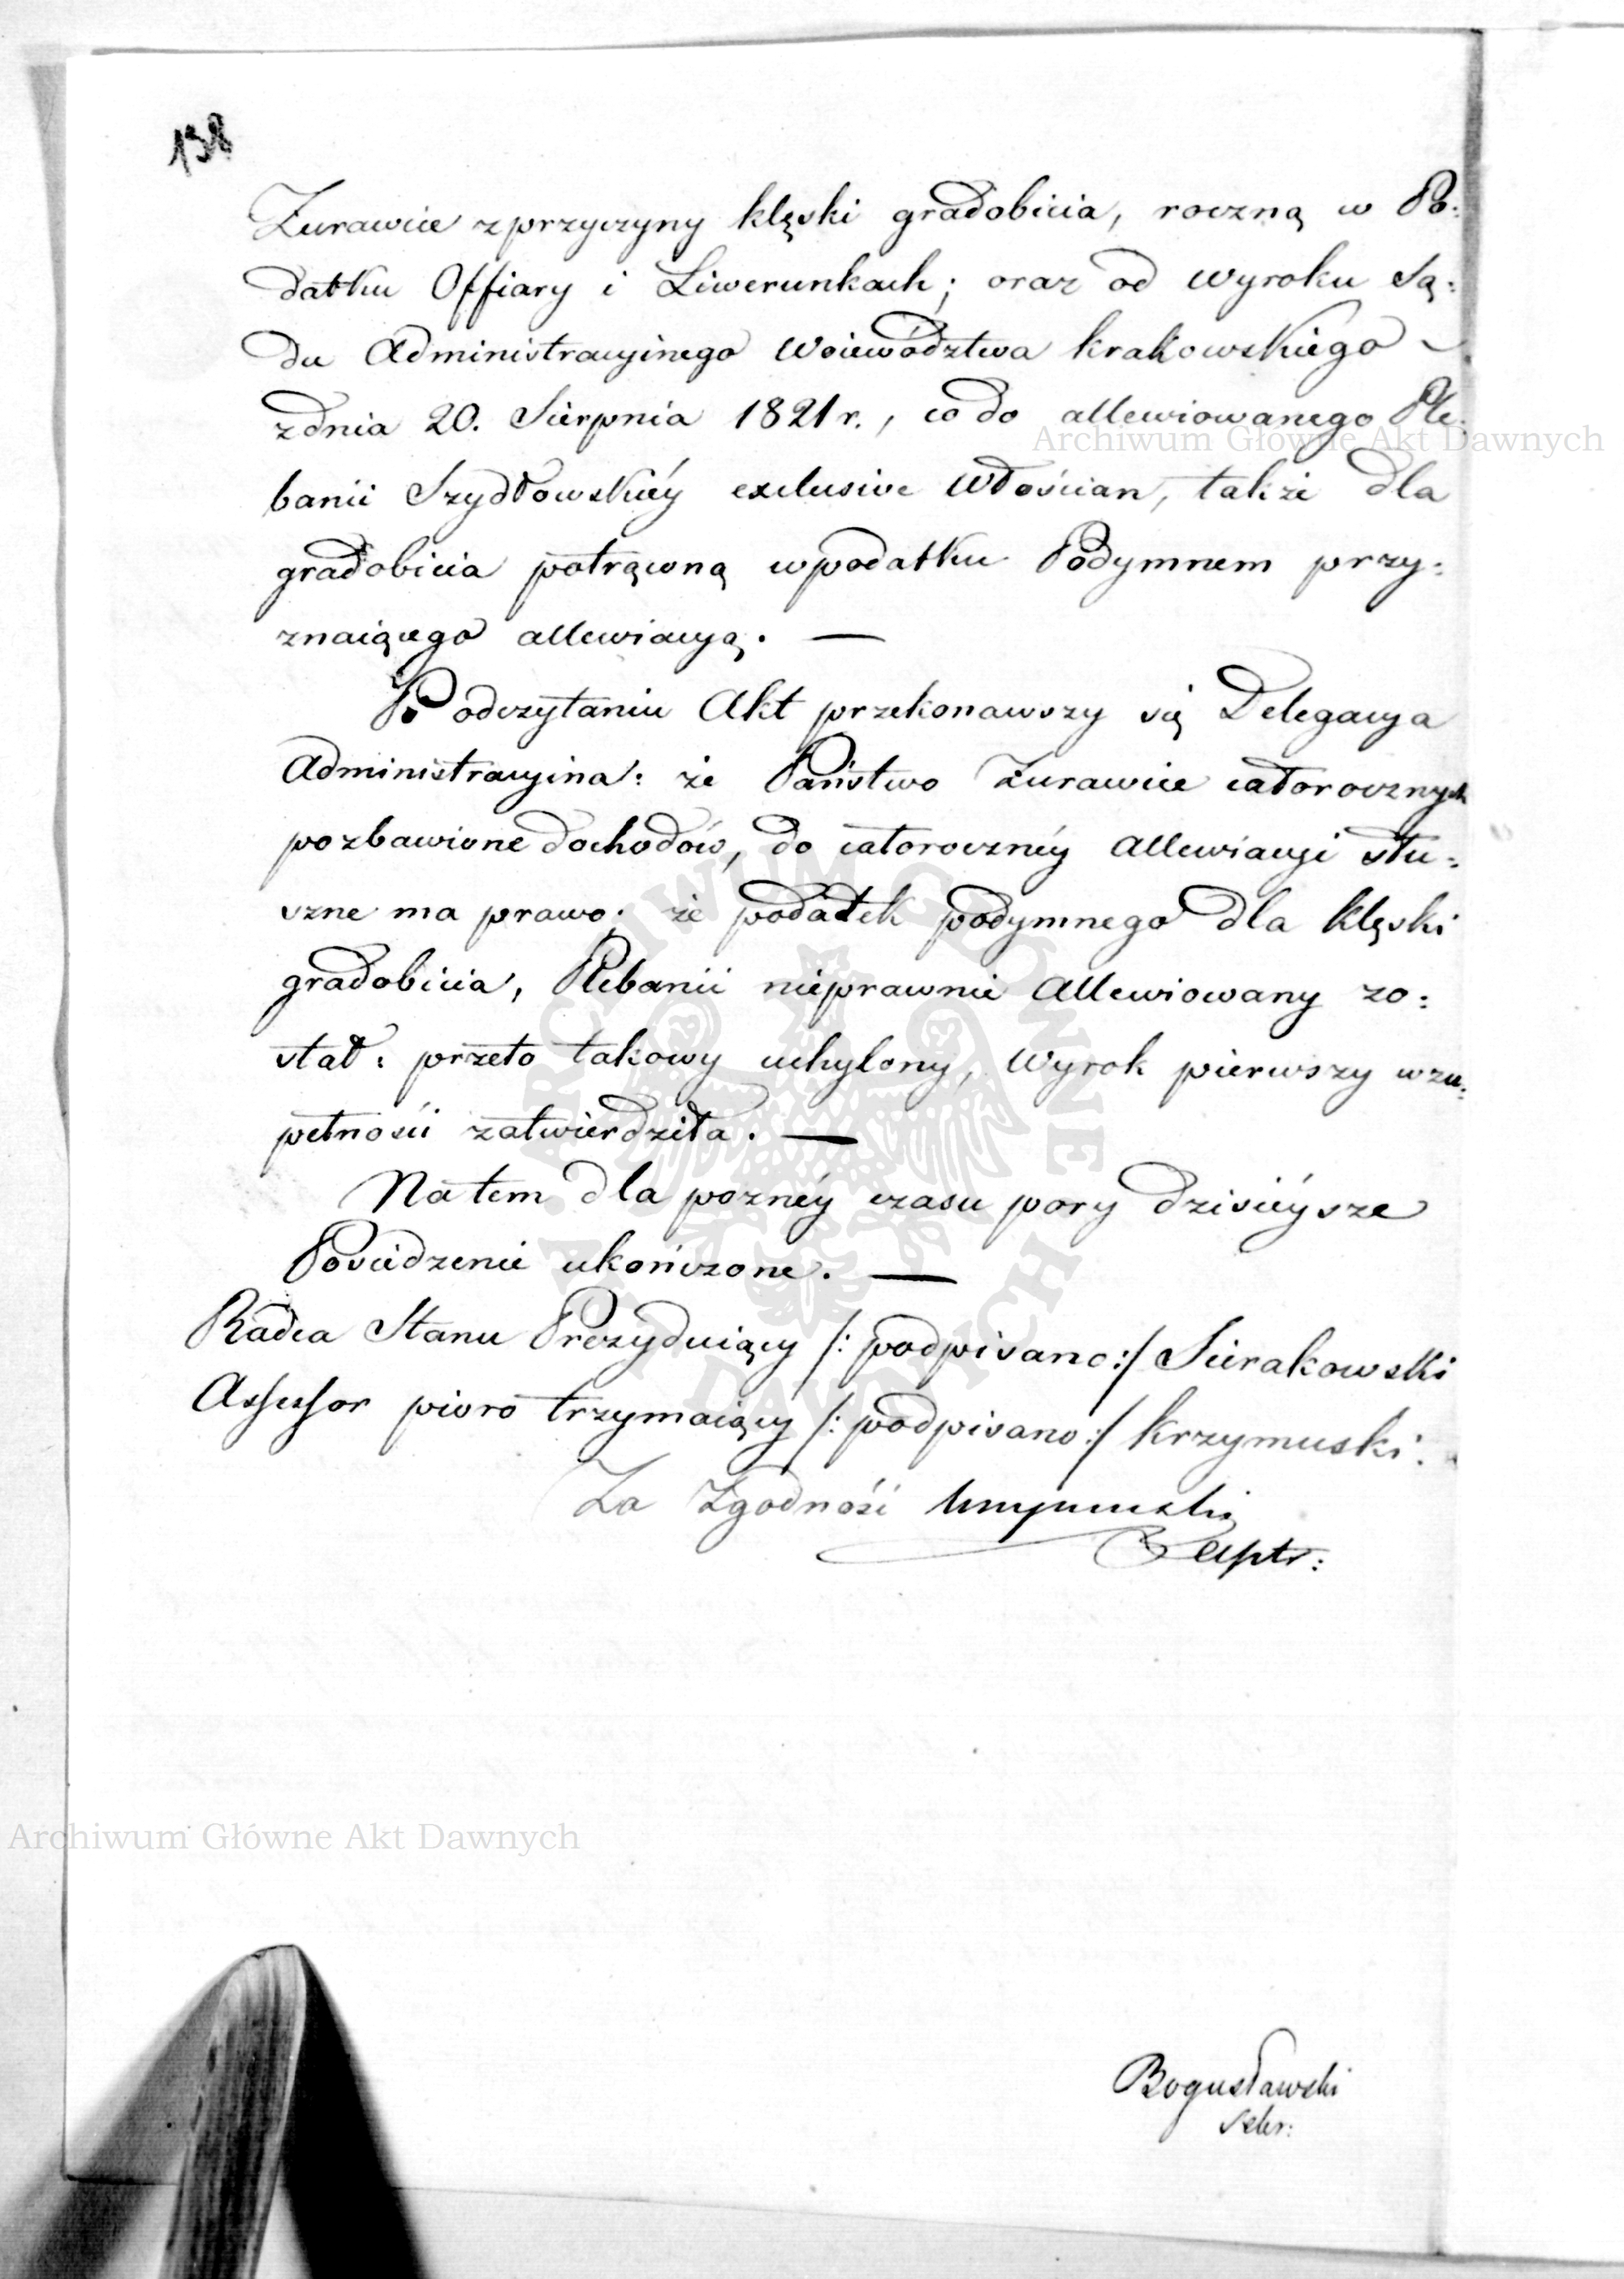 138
Żurawice z przyczyny klęski gradobicia, roczną w Po:
datku Offiary i Liwerunkach; oraz od Wyroku Są:
du Administracyinego Woiewodztwa Krakowskiego
z dnia 20. Sierpnia 1821 r., co do allewiowanego Ple:
Archiwum Główne Akt Dawnych
banii Szydłowskiéy exclusive Włościan, także dla
gradobicia potrąconą w podatku Podymnem przy:
znaiącego allewiacyą. —
Po odczytaniu Akt przekonawszy się Delegacya
Administracyina: że Państwo Żurawice całorocznych
pozbawione dochodów, do całorocznéy Allewiacyi słu:
szne ma prawo; że podatek podymnego dla klęski
gradobicia, Plebanii nieprawnie Allewiowany zo:
stał: przeto takowy uchylony, Wyrok pierwszy w zu:
pełności zatwierdziła. —
Na tem dla poznéy czasu pory dzisiéysze
Posiedzenie ukończone. —
Radca Stanu Prezyduiący /: podpisano :/ Sierakowski
Assessor pioro trzymaiący /: podpisano :/ Krzymuski.
Za Zgodność Krzymuski
Archiwum Główne Akt Dawnych
Bogusławski
Sekr:
ARCHIWUM GŁÓWNE AKT DAWNYCH